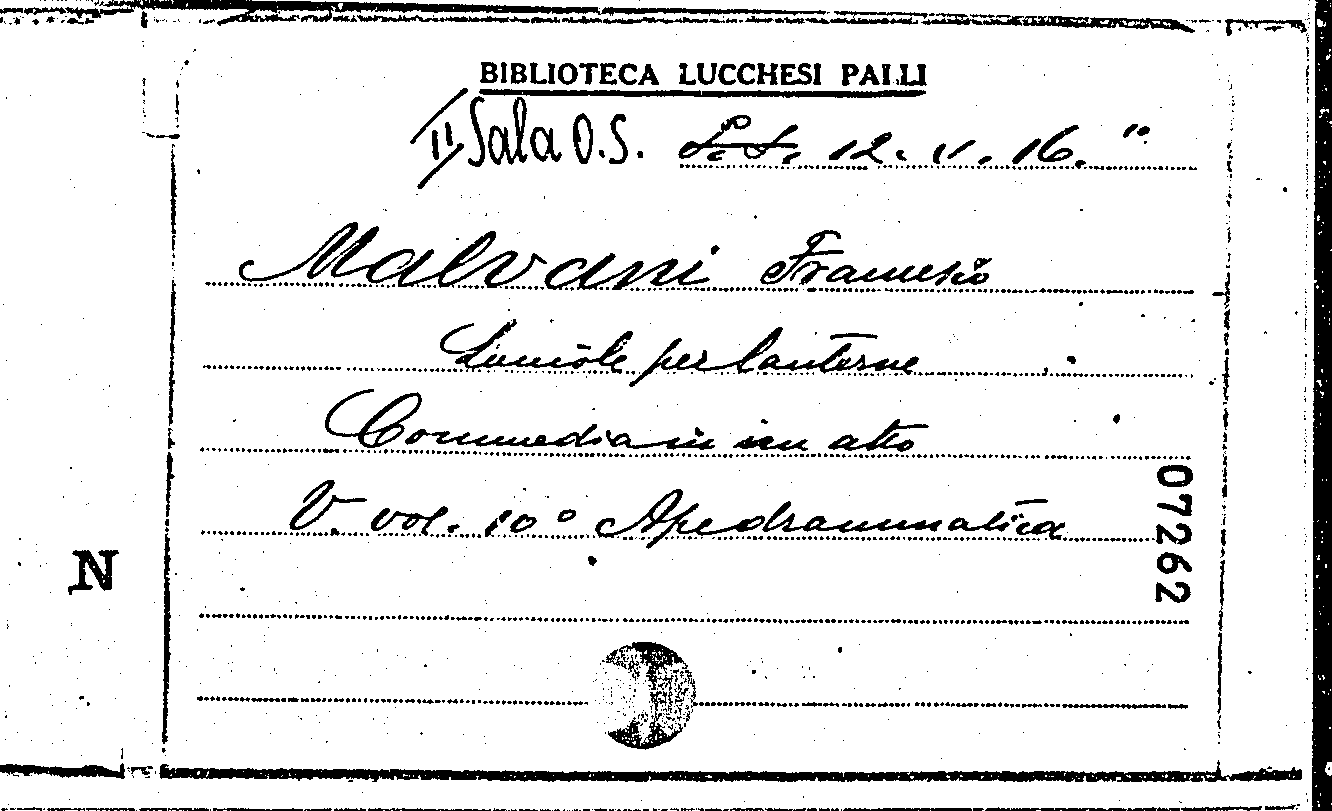 BIBLIOTECA LUCCHESI PALLI
II Sala O.S. L.S. 12. V. 16. 10
Malvani Francesco
Lucciole per lanterne
Commedia in un atto
V. vol. 10° Ape drammatica
07262
N